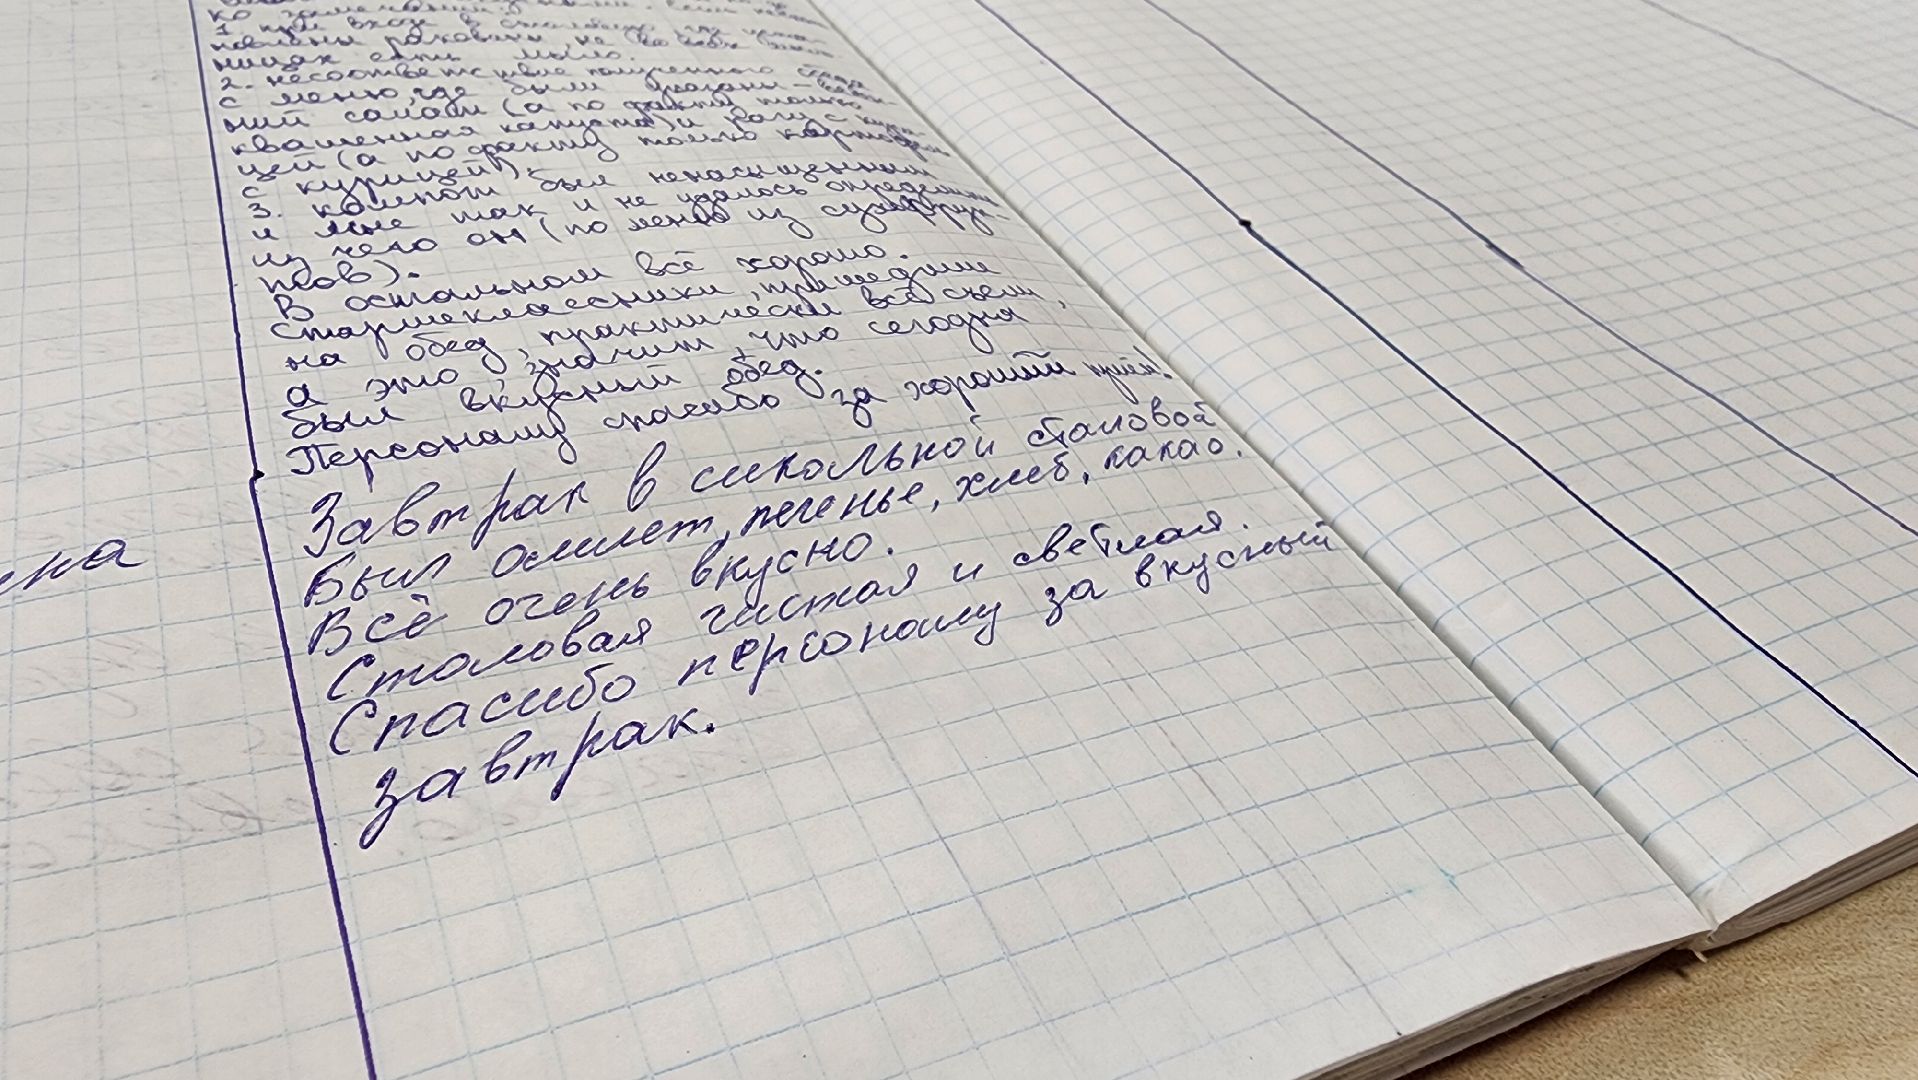 ко
1. при входе в столовую, где уста-
новлены раковины, не во всех
ницах есть мыло.
2. несоответствие полученного
с меню, где были указаны
ний салат (а по факту только
квашенная капуста) и рагу с кури-
цей (а по факту только картофель
с курицей).
3. компот был ненасыщенным
и мне так и не удалось определить
из чего он (по меню из сухофрук-
тов).
В остальном всё хорошо.
Старшеклассники, пришедшие
на обед, практически всё съели,
а это значит, что сегодня
был вкусный обед.
Персоналу спасибо за хороший приём!
Завтрак в школьной столовой
Был омлет, печенье, хлеб, какао.
Всё очень вкусно.
Столовая чистая и светлая.
Спасибо персоналу за вкусный
завтрак.